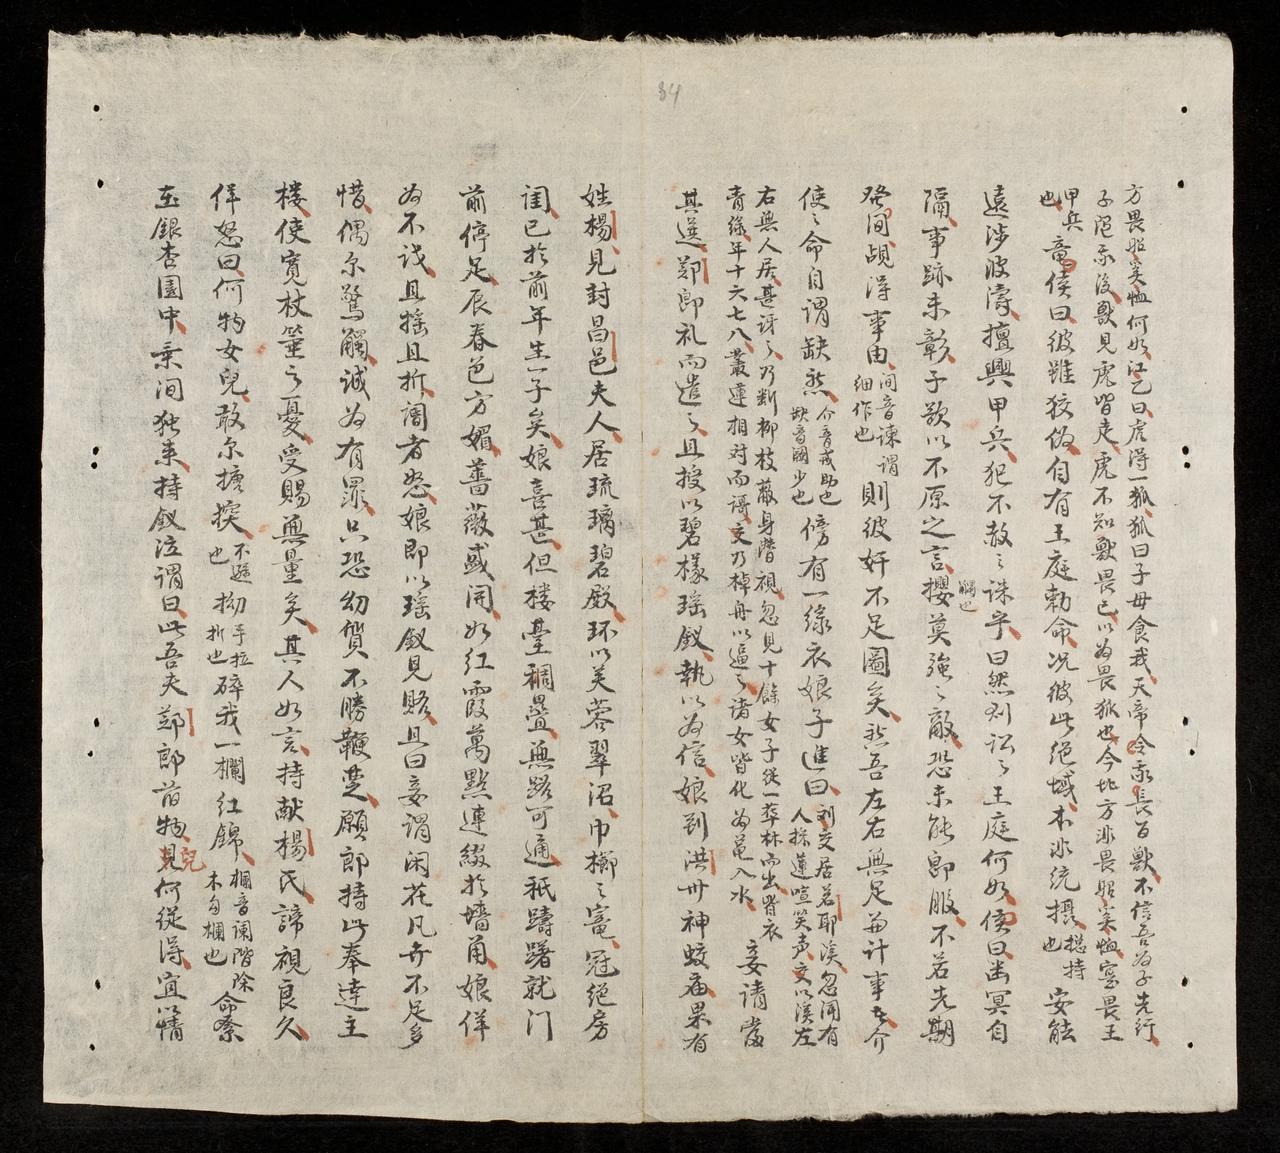 84
方畏昭奚恤何如江乙曰虎得一狐狐曰子毋食我天帝令我長百獸不信吾為子先行
子隨我後獸見虎皆走虎不知獸畏已以為畏狐也今北方非畏昭奚恤寔畏王
甲兵也竜侯曰彼雖狡偽自有王庭勅命况彼此絕域本非統攝揔持也安能
遠涉波濤擅興甲兵犯不赦之誅乎曰然則訟之王庭何如侯曰幽冥自
隔事跡未彰子欲以不原之言攖觸也莫強之敵恐未能即服不若先期
發間覘得事由間音諫謂細作也則彼奸不足圖矣然吾左右無足與計事者介
使之命自謂缺然介音戒助也缺音闕少也傍有一綠衣娘子進曰刘交居若耶溪忽聞有人採蓮喧笑声交以溪左
右無人居甚訝之乃断柳枝蔽身潛視忽見十餘女子從一莽林而出皆衣
青綠年十六七八叢蓮相対而語交乃棹舟以逼之诸女皆化為黿入水妾請當
其选鄭郎礼而遣之且授以碧樣瑶釵執以為信娘到洪州神蛟庙果有
姓楊見封昌邑夫人居琉璃碧殿环以芙蓉翠沼巾櫛之寵冠絕房
闺已於前年生一子矣娘喜甚但楼臺稠疊無路可通祇躊躇就门
前停足辰春色方媚薔薇盛開如红霞萬點連綴於墻角娘佯
為不識且搖且折阍者怒娘即以瑶釵見賂且曰妾謂闲花凡卉不足多
惜偶尔驚觸诚為有罪只恐幼質不勝鞭楚願郎持此奉達主
楼使寬杖箠之憂受賜無量矣其人如言持献楊氏諦視良久
佯怒曰何物女兒敢尔搪揬不遜也拗手拉折也碎我一欄红錦欄音闌階除木勾欄也命縶
在銀杏園中乗间独来持釵泣謂曰此吾夫鄭郎舊物兒何從得宜以情